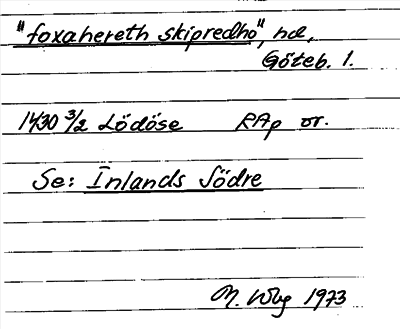 "foxahereth skipredho", hd,
Göteb. 1.
1430 3/2 Lödöse RAp or.
Se: Inlands Södre
M. Wbg 1973